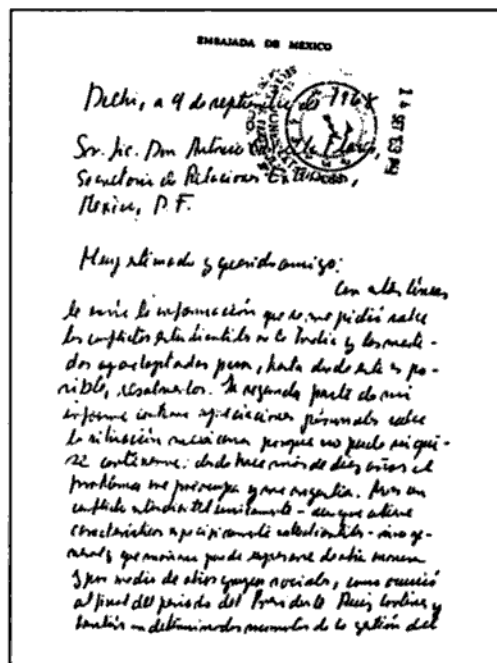 EMBAJADA DE MEXICO
Delhi, a 9 de septiembre de 1968
Sr. Lic. Don Antonio
Secretario de Relaciones Exteriores,
México, D.F.
Muy estimado y querido amigo:
Con estas líneas
le envío la información que se me pidió sobre
los conflictos estudiantiles en la India y las medi-
das adoptadas para, hasta donde esto es po-
sible, resolverlos. La segunda parte de mi
informe contiene apreciaciones personales sobre
la situación mexicana porque no pude ni qui-
se contenerme: desde hace más de diez años el
problema me preocupa y me angustia. No es un
conflicto estudiantil únicamente - aunque
características específicamente estudiantiles - sino ge-
neral y que mañana puede expresarse de otra manera
y por medio de otros grupos sociales, como ocurrió
al final del periodo del Presidente Ruiz Cortines y
también en determinados momentos de la gestión del